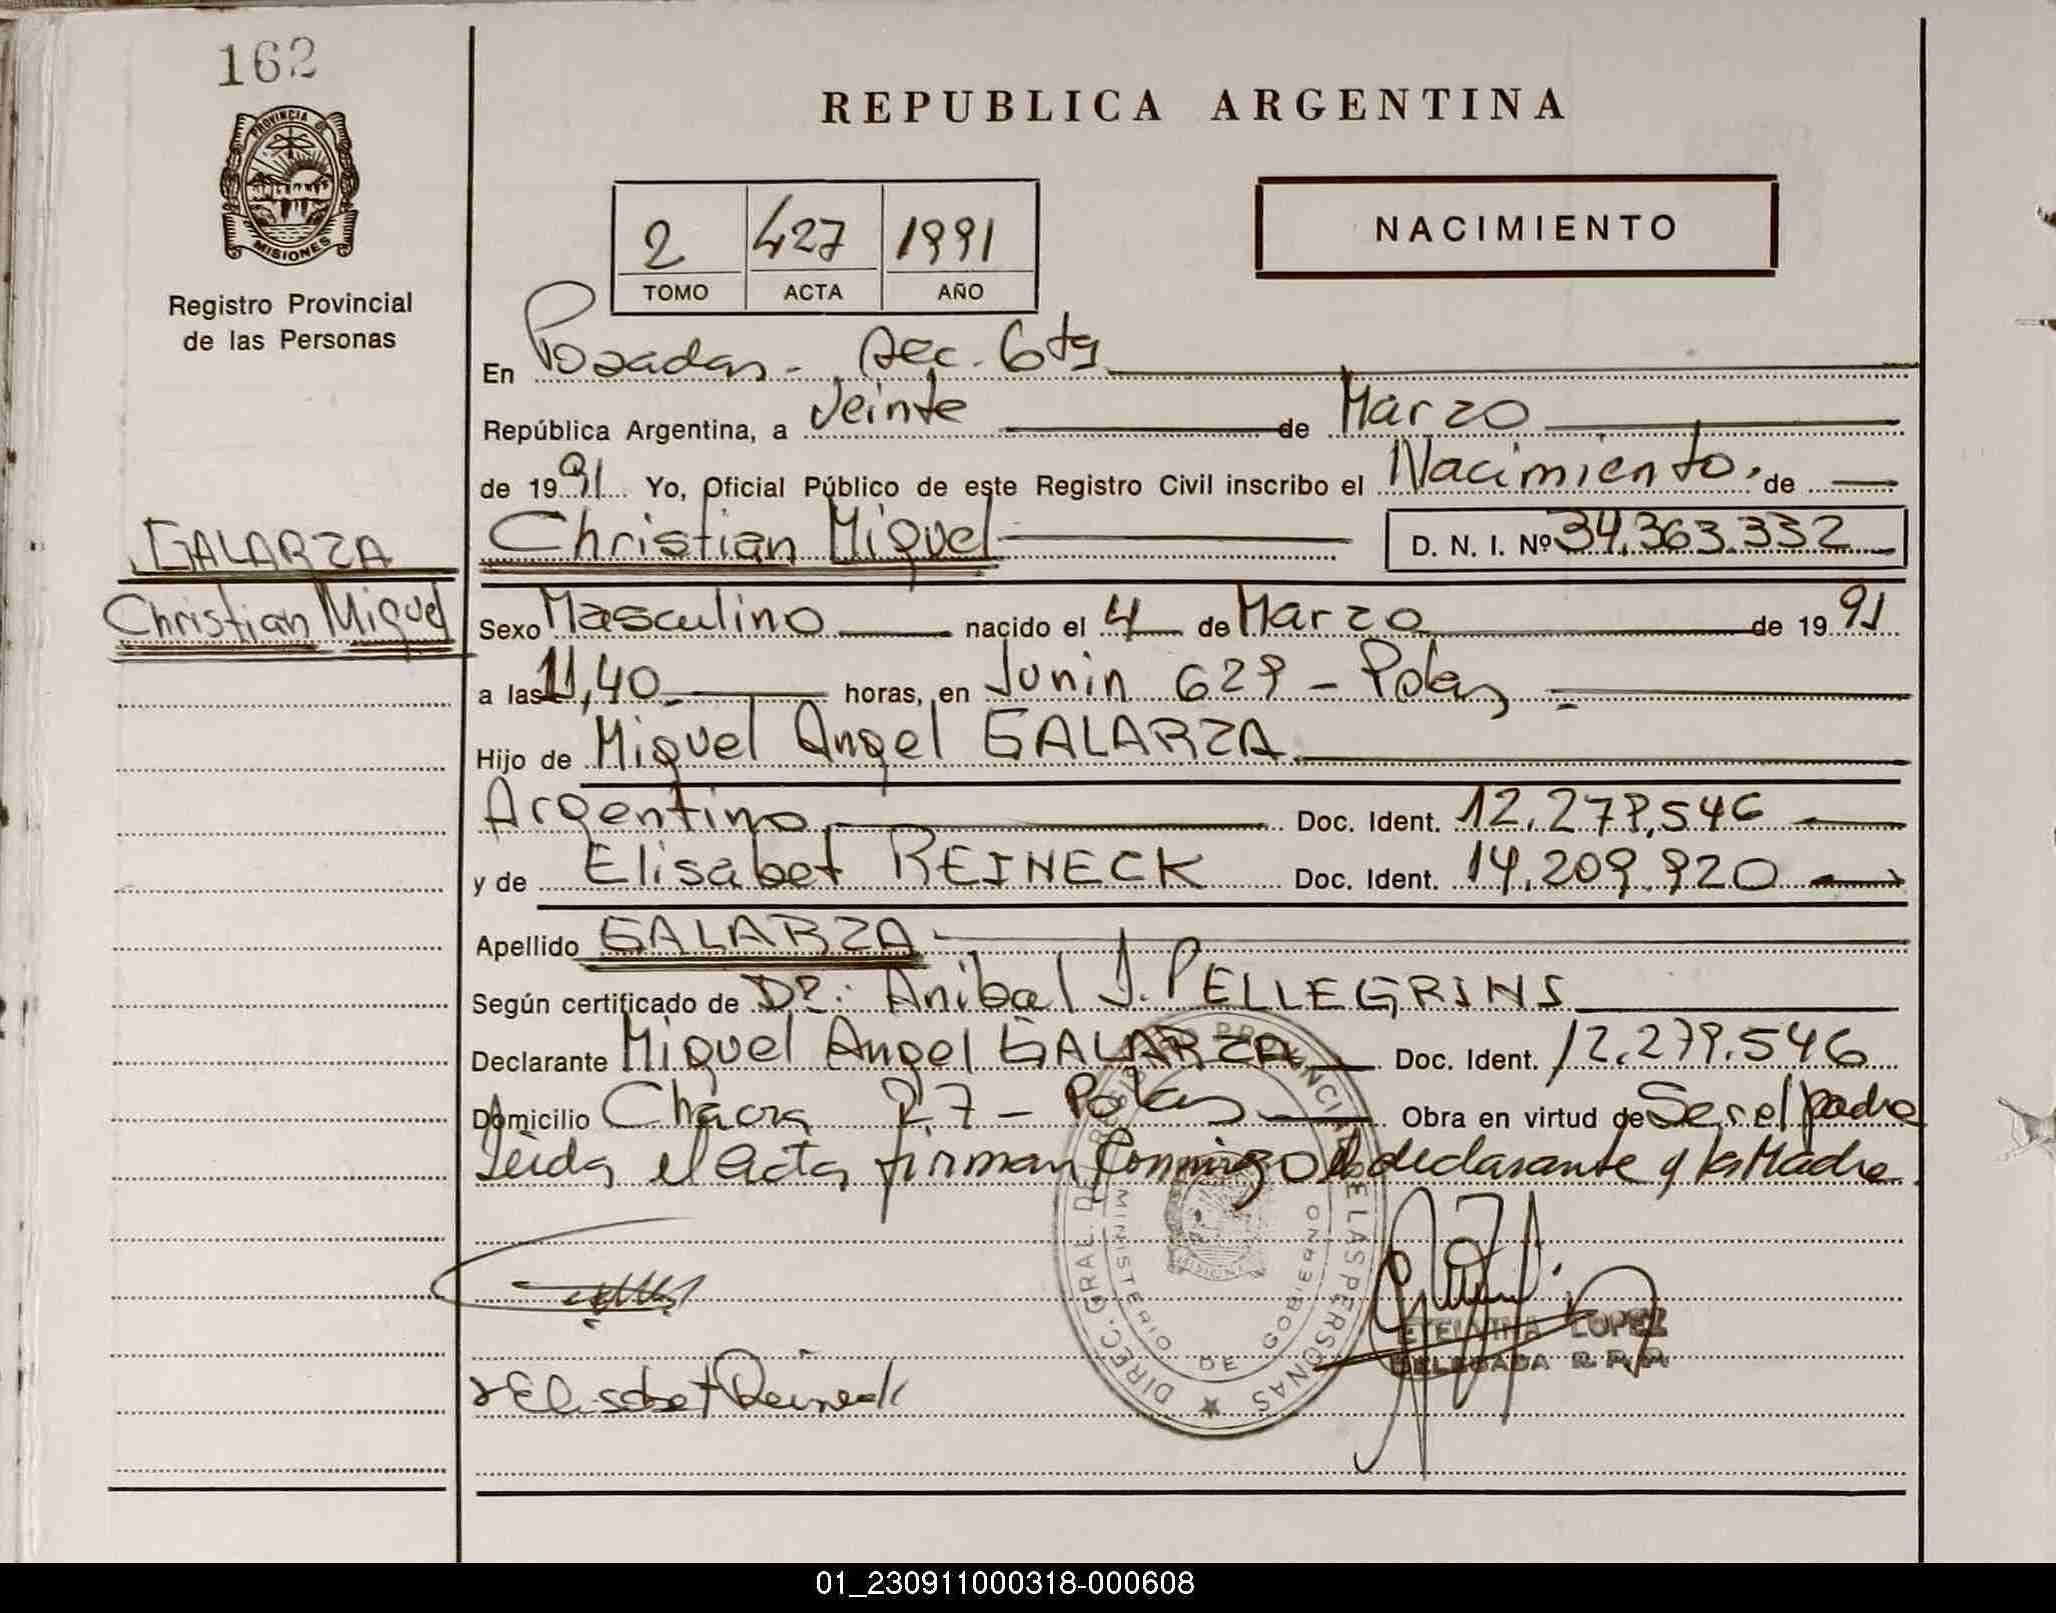 162
PROVINCIA DE
MISIONES
Registro Provincial
de las Personas
REPUBLICA ARGENTINA
2 427 1991
TOMO ACTA AÑO
NACIMIENTO
En Posadas - Sec. 6ta
República Argentina, a Veinte de Marzo
de 1991 Yo, Oficial Público de este Registro Civil inscribo el Nacimiento. de
Christian Miguel D. N. I. Nº 34.363.332
GALARZA
Christian Miguel
Sexo Masculino nacido el 4 de Marzo de 1991
a las 11,40 horas, en Junin 629 - Pdas
Hijo de Miguel Angel GALARZA
Argentino Doc. Ident. 12.279.546
y de Elisabet REINECK Doc. Ident. 14.209.920
Apellido GALARZA
Según certificado de Dr. Anibal J. PELLEGRINI
Declarante Miguel Angel GALARZA Doc. Ident. 12.279.546
Domicilio Chacra 27 - Pdas Obra en virtud de Ser el padre
Leida el acta firman conmigo el declarante y la Madre
DIREC. GRAL. DE REGISTRO PROVINCIAL DE LAS PERSONAS
MINISTERIO DE GOBIERNO
MISIONES
ETELVINA LOPEZ
DELEGADA R. P. P.
Elisabet Reineck
01_230911000318-000608